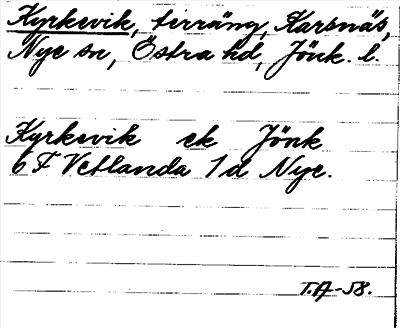 Kyrkevik, tirräng, Karsnäs,
Nye sn, Östra hd, Jönk. l.
Kyrkevik ek Jönk
6 F Vetlanda 1 d Nye.
T.A-58.